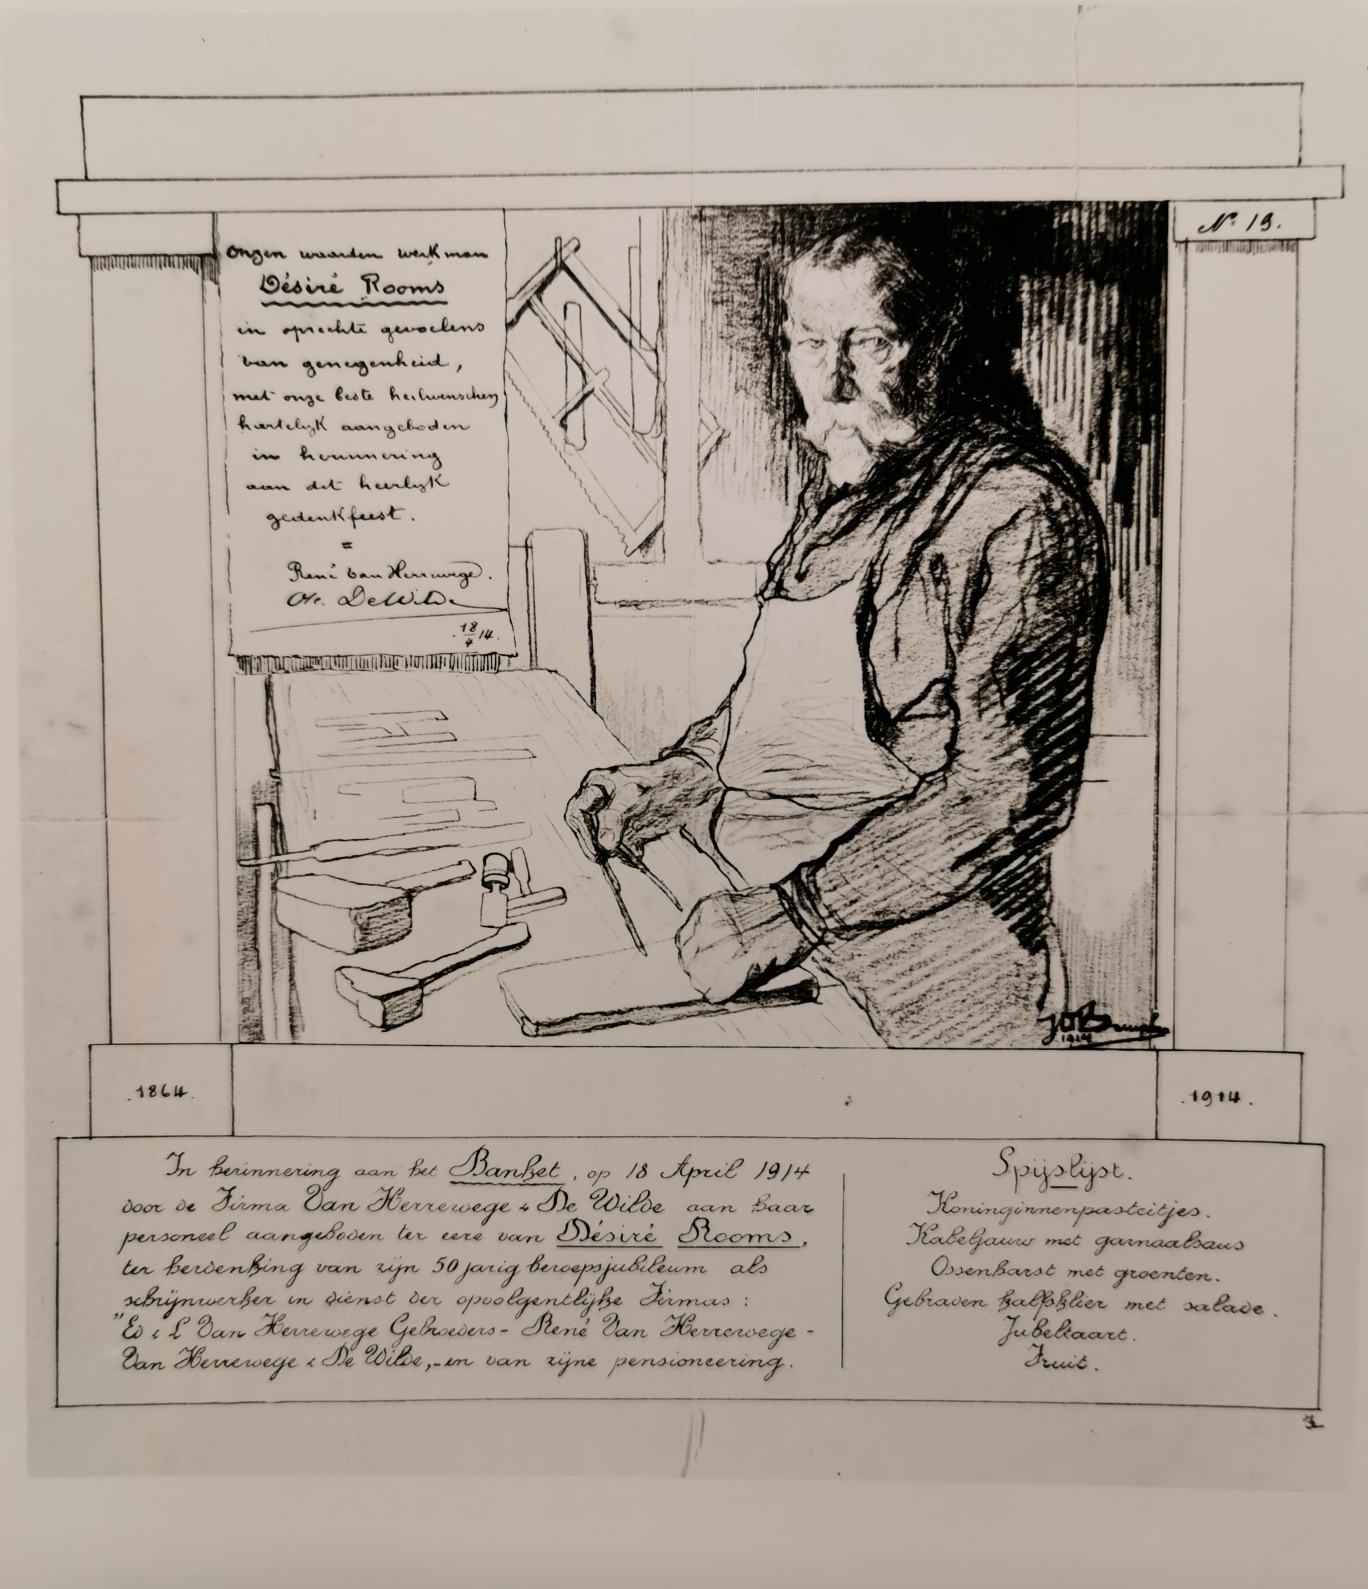 Onzen waarden werkman
Désiré Rooms
in oprechte gevoelens
van genegenheid,
met onze beste heilwenschen
hartelijk aangeboden
in herinnering
aan dit heerlijk
gedenkfeest.
=
René Van Herrewege.
De Wilde
18/4 14.
N. 19.
1914
.1864.
.1914.
In herinnering aan het Banket, op 18 April 1914
door de Firma Van Herrewege & De Wilde aan haar
personeel aangeboden ter eere van Désiré Rooms,
ter herdenking van zijn 50 jarig beroepsjubileum als
schrijnwerker in dienst der opvolgentlijke Firmas :
"Ed & L Van Herrewege Gebroeders - René Van Herrewege -
Van Herrewege & De Wilde,- en van zijne pensioneering.
Spijslijst.
Koninginnenpasteitjes.
Kabeljauw met garnaalsaus
Ossenharst met groenten.
Gebraden kalfsklier met salade.
Jubeltaart.
Fruit.